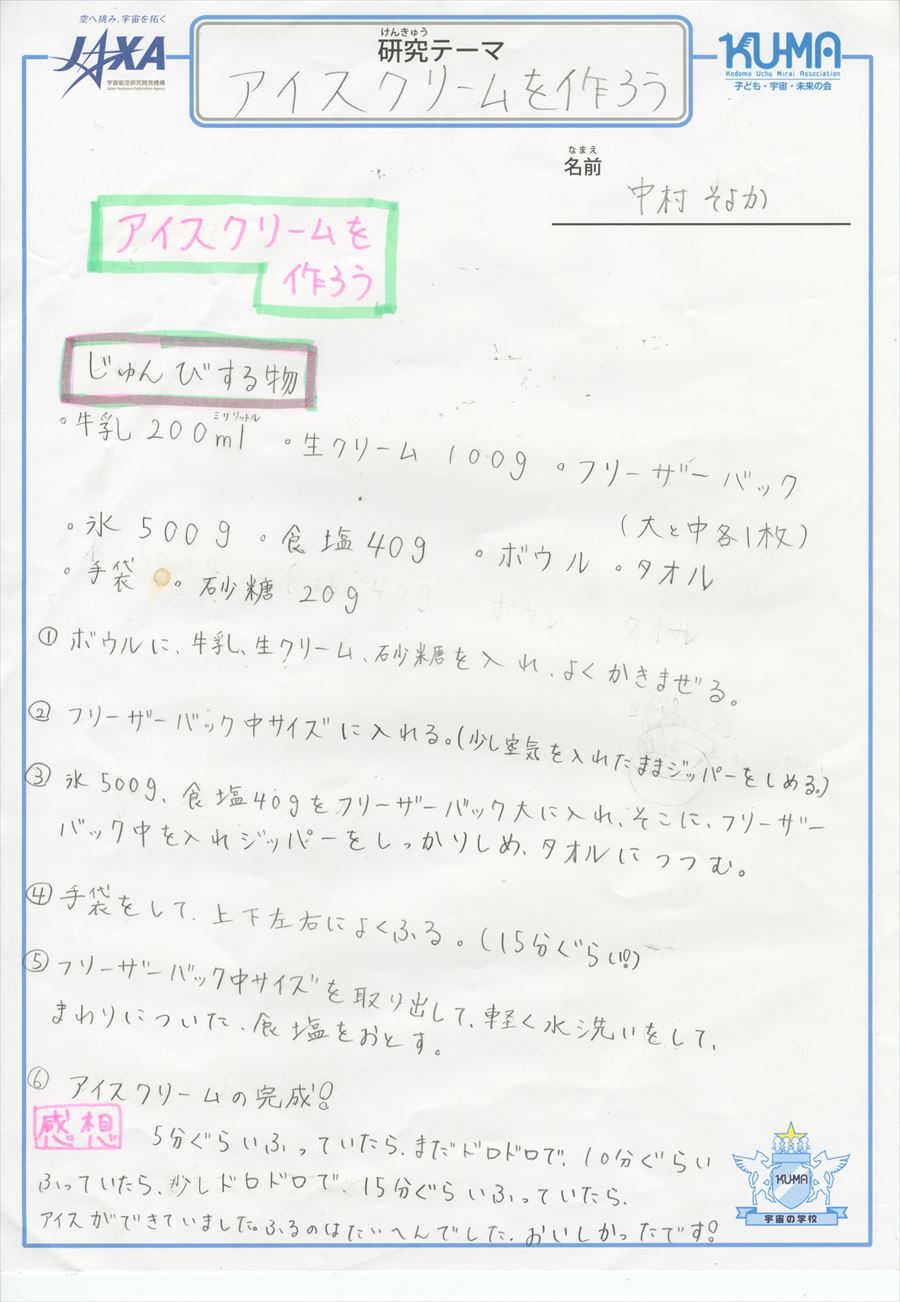 空へ挑み、宇宙を拓く
JAXA
宇宙航空研究開発機構
Japan Aerospace Exploration Agency
けんきゅう
研究テーマ
アイスクリームを作ろう
KU-MA
Kodomo Uchu Mirai Association
子ども・宇宙・未来の会
なまえ
名前
中村 そよか
アイスクリームを
作ろう
じゅんびする物
ミリリットル
・牛乳 200ml ・生クリーム 100g ・フリーザーバック
(大と中各1枚)
・氷 500g ・食塩40g ・ボウル ・タオル
・手袋 ・砂糖 20g
① ボウルに、牛乳、生クリーム、砂糖を入れ、よくかきまぜる。
② フリーザーバック中サイズに入れる。(少し空気を入れたままジッパーをしめる。)
③ 氷500g、食塩40gをフリーザーバック大に入れ、そこに、フリーザー
バック中を入れジッパーをしっかりしめ、タオルにつつむ。
④ 手袋をして、上下左右によくふる。(15分ぐらい!)
⑤ フリーザーバック中サイズを取り出して、軽く水洗いをして、
まわりについた、食塩をおとす。
⑥ アイスクリームの完成!
感想
5分ぐらいふっていたら、まだドロドロで、10分ぐらい
ふっていたら、少しドロドロで、15分ぐらいふっていたら、
アイスができていました。ふるのはたいへんでした、おいしかったです!
KUMA
宇宙の学校